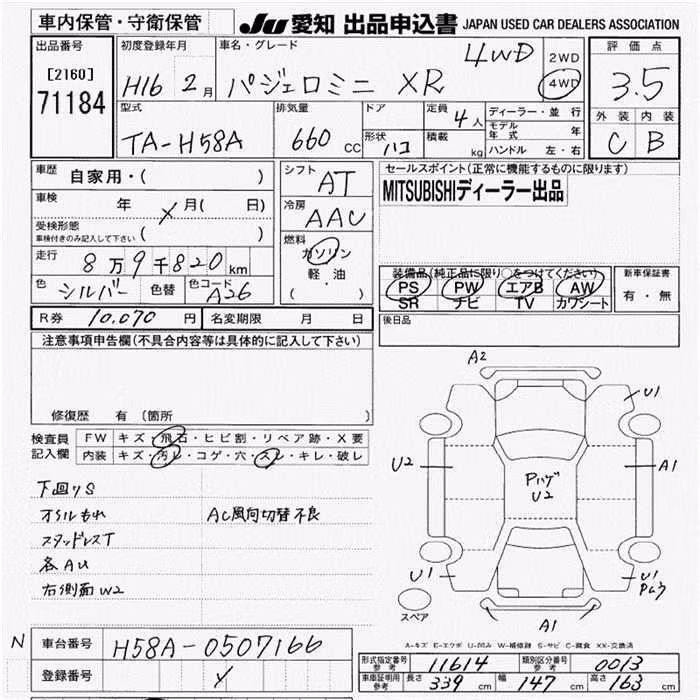 車内保管・守衛保管
JU 愛知 出品申込書 JAPAN USED CAR DEALERS ASSOCIATION
出品番号
[2160]
71184
初度登録年月
H16 2月
車名・グレード
パジェロミニ XR
4WD
2WD
4WD
評価点
3.5
外装 内装
C B
型式
TA-H58A
排気量
660 cc
ドア
形状 ハコ
定員 4人
積載 kg
ディーラー・並行
モデル年式 年
ハンドル 左・右
車歴
自家用・( )
車検 年 月( 日)
受検形態
車検付きのみ記入して下さい ( )
走行
8万9千820km
色 シルバー 色替 色コード A26
シフト AT
冷房 AAC
燃料
ガソリン
軽・油
( )
セールスポイント(正常に機能するものに限ります)
MITSUBISHIディーラー出品
装備品(純正品に限り○をつけてください)
PS PW エアB AW
SR ナビ TV カワシート
新車保証書
有・無
R券 10,070円 名変期限 月 日
後日品
注意事項申告欄(不具合内容等は具体的に記入して下さい)
修復歴 有(箇所 )
検査員
記入欄
FW キズ・飛石・ヒビ割・リペア跡・X要
内装 キズ・汚レ・コゲ・穴・スレ・キレ・破レ
下回りS
オイルもれ AC風向切替不良
スタッドレスT
各AU
右側面W2
A2
U1
U2
A1
Pハゲ
U2
U1
U1
スペア
A1
A-キズ E-エクボ U-凹み W-補修跡 S-サビ C-腐食 XX-交換済
N
車台番号 H58A-0507166
登録番号
形式指定番号 参考 11614 類別区分番号 参考 0013
車庫証明用 参考 長さ 339cm 幅 147cm 高さ 163cm